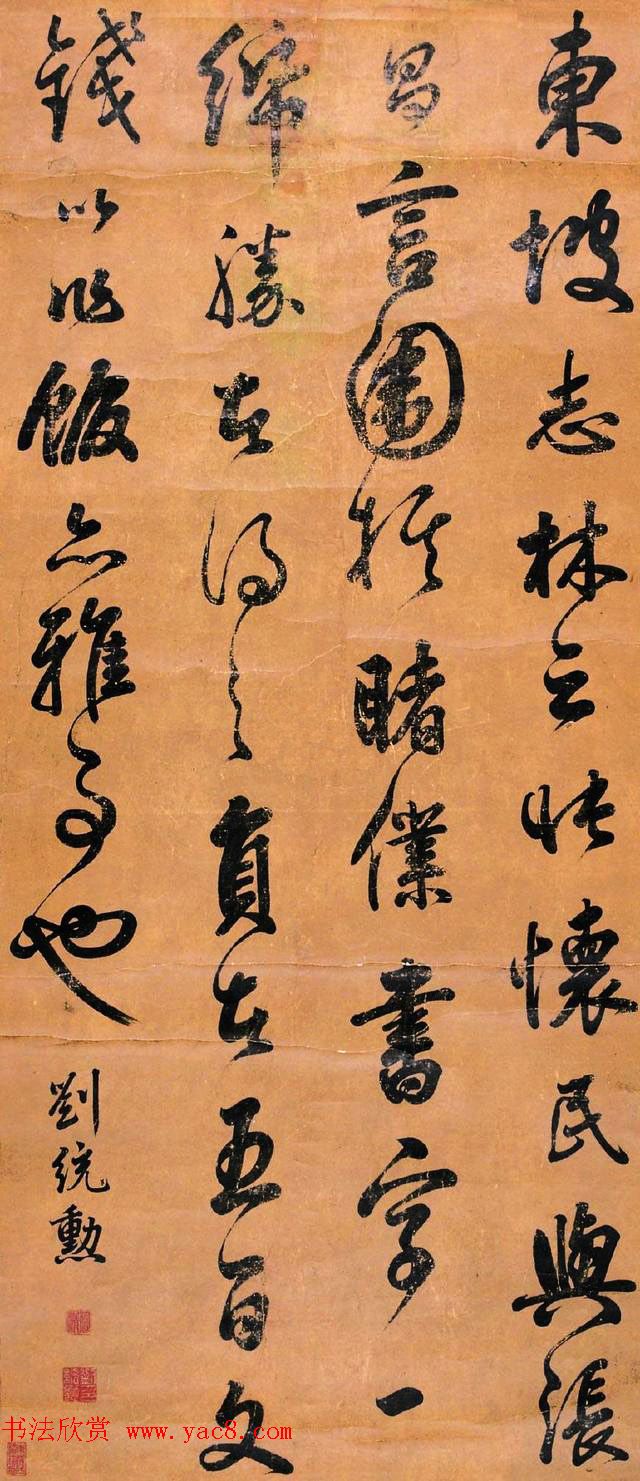 東坡志林云張懷民與張
昌言圍棋賭僕書字一
紙勝者得之負者五百文
錢以作飯亦雅事也
劉統勳
书法欣赏 www.yac8.com